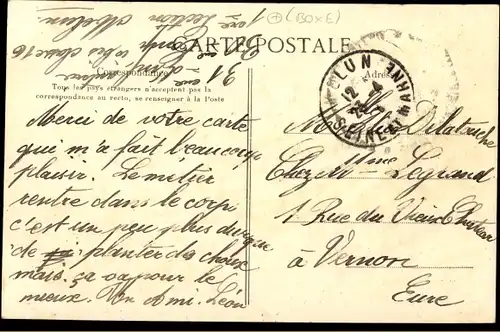 (BOXE)
CARTE POSTALE
Correspondance
Tous les pays étrangers n'acceptent pas la
correspondance au recto, se renseigner à la Poste
MELUN
12
SEINE-ET-MARNE
Merci de votre carte
qui m'a fait beaucoup
plaisir. Le métier
rentre dans le corps
c'est un peu plus dur que
de planter des choux
mais ça va pour le
mieux. Un Ami. Léon
Delatouche
Chez Mme
Legrand
1 Rue du Vieux Château
à Vernon
Eure